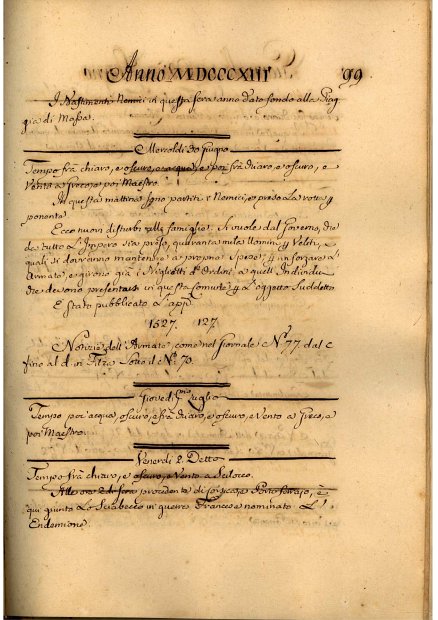 Anno MDCCCXIII 99
I Bastimenti Nemici in questa sera anno dato fondo alla Piag
gia di Massa.
Mercoldì 30 Giugno
Tempo frà chiaro, e oscuro, e acqua, e poi frà chiaro, e oscuro, e
Vento a Greco, e poi Maestro.
In questa mattina sono partiti i Nemici, e preso La rotta
ponente.
Ecco nuovi disturbi alle famiglie. Si vuole dal Governo, che
da tutto L'Impero sia preso, quaranta mila Uomini Veliti, e
quali si dovranno mantenere a proprie Spese, inforzare L'
Armata, e girono già i Biglietti d'Ordini a quelli Individui
che devono presentarsi in questa Comunità L'oggetto Suddetto.
E stato pubblicato L'app.
1527. 127.
Notizie dell'Armata, come nel Giornale N. 77 dal c
fino al d in Filza Sotto de N. 70.
Giovedì Pmo Luglio
Tempo poi acqua, oscuro, e frà chiaro, e oscuro, e Vento a Greco, e
poi Maestro.
Venerdì 2. Detto
Tempo frà chiaro, e oscuro, e Vento a Scilocco.
Alle ore 2 di sera procedente di Corsica, e Porto ferrajo, è
qui giunto Lo Sciabecco in guerra Francese nominato L'
Endemione.